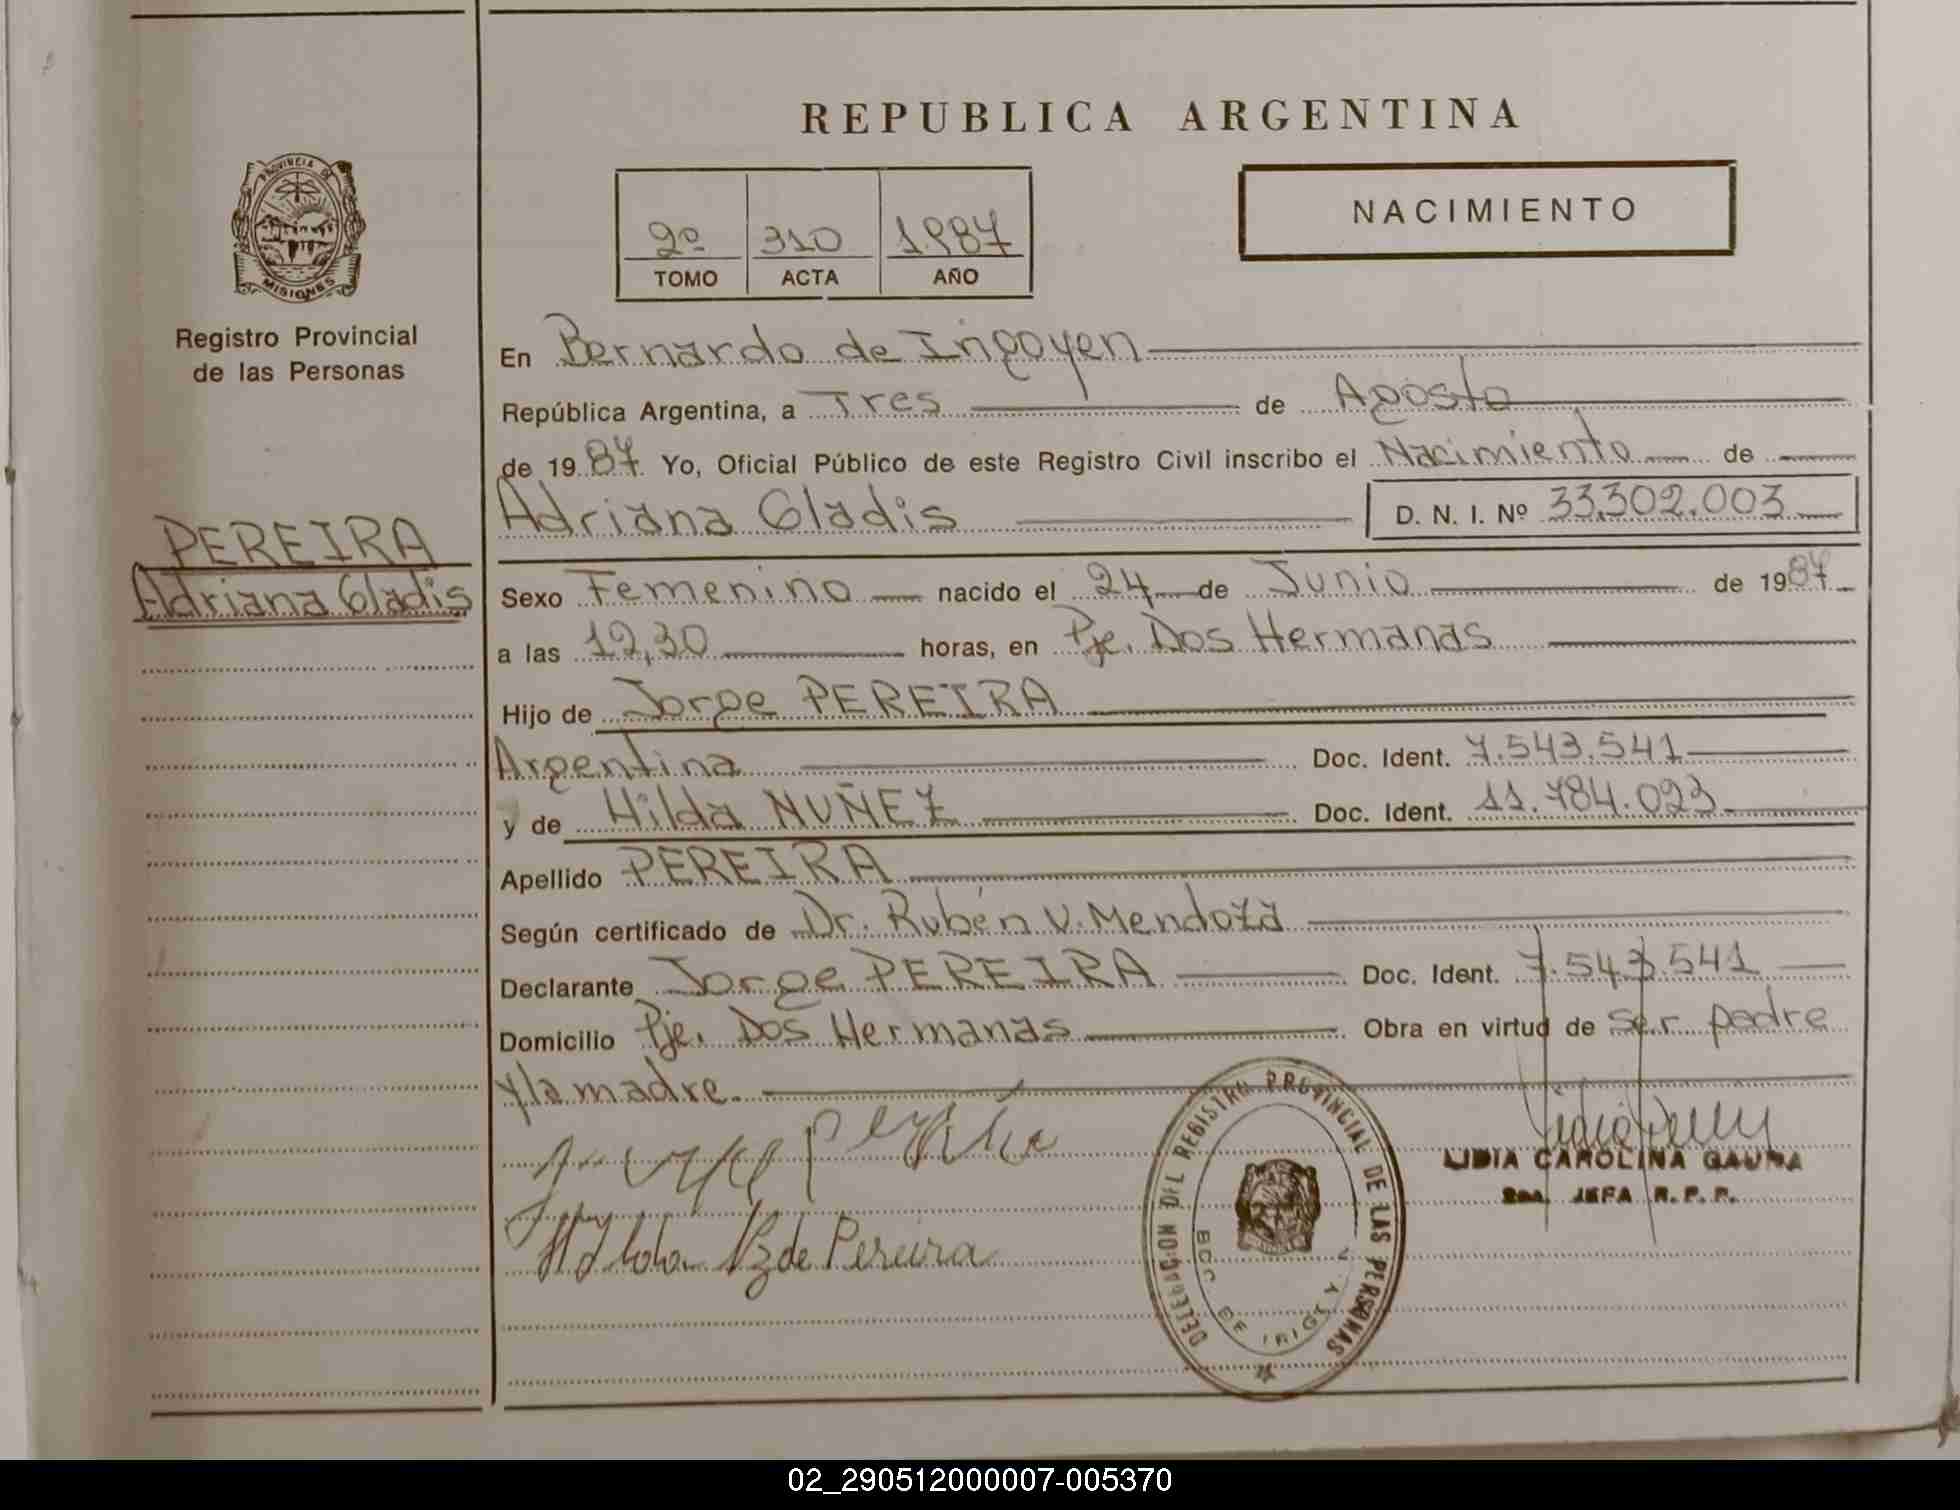 REPUBLICA ARGENTINA
PROVINCIA DE
MISIONES
Registro Provincial
de las Personas
2º 310 1987
TOMO ACTA AÑO
NACIMIENTO
En Bernardo de Irigoyen
República Argentina, a Tres de Agosto
de 1987 Yo, Oficial Público de este Registro Civil inscribo el Nacimiento de
Adriana Gladis D. N. I. Nº 33.302.003
PEREIRA
Adriana Gladis
Sexo Femenino nacido el 24 de Junio de 1987
a las 12,30 horas, en Pje. Dos Hermanas
Hijo de Jorge PEREIRA
Argentina Doc. Ident. 7.543.541
y de Hilda NUÑEZ Doc. Ident. 11.784.023
Apellido PEREIRA
Según certificado de Dr. Rubén V. Mendoza
Declarante Jorge PEREIRA Doc. Ident. 7.543.541
Domicilio Pje. Dos Hermanas Obra en virtud de ser padre
y la madre.
de Pereira
DELEGACION DEL REGISTRO PROVINCIAL DE LAS PERSONAS
BDO. DE IRIGOYEN
LIDIA CAROLINA GAUNA
JEFA R. P. P.
02_290512000007-005370